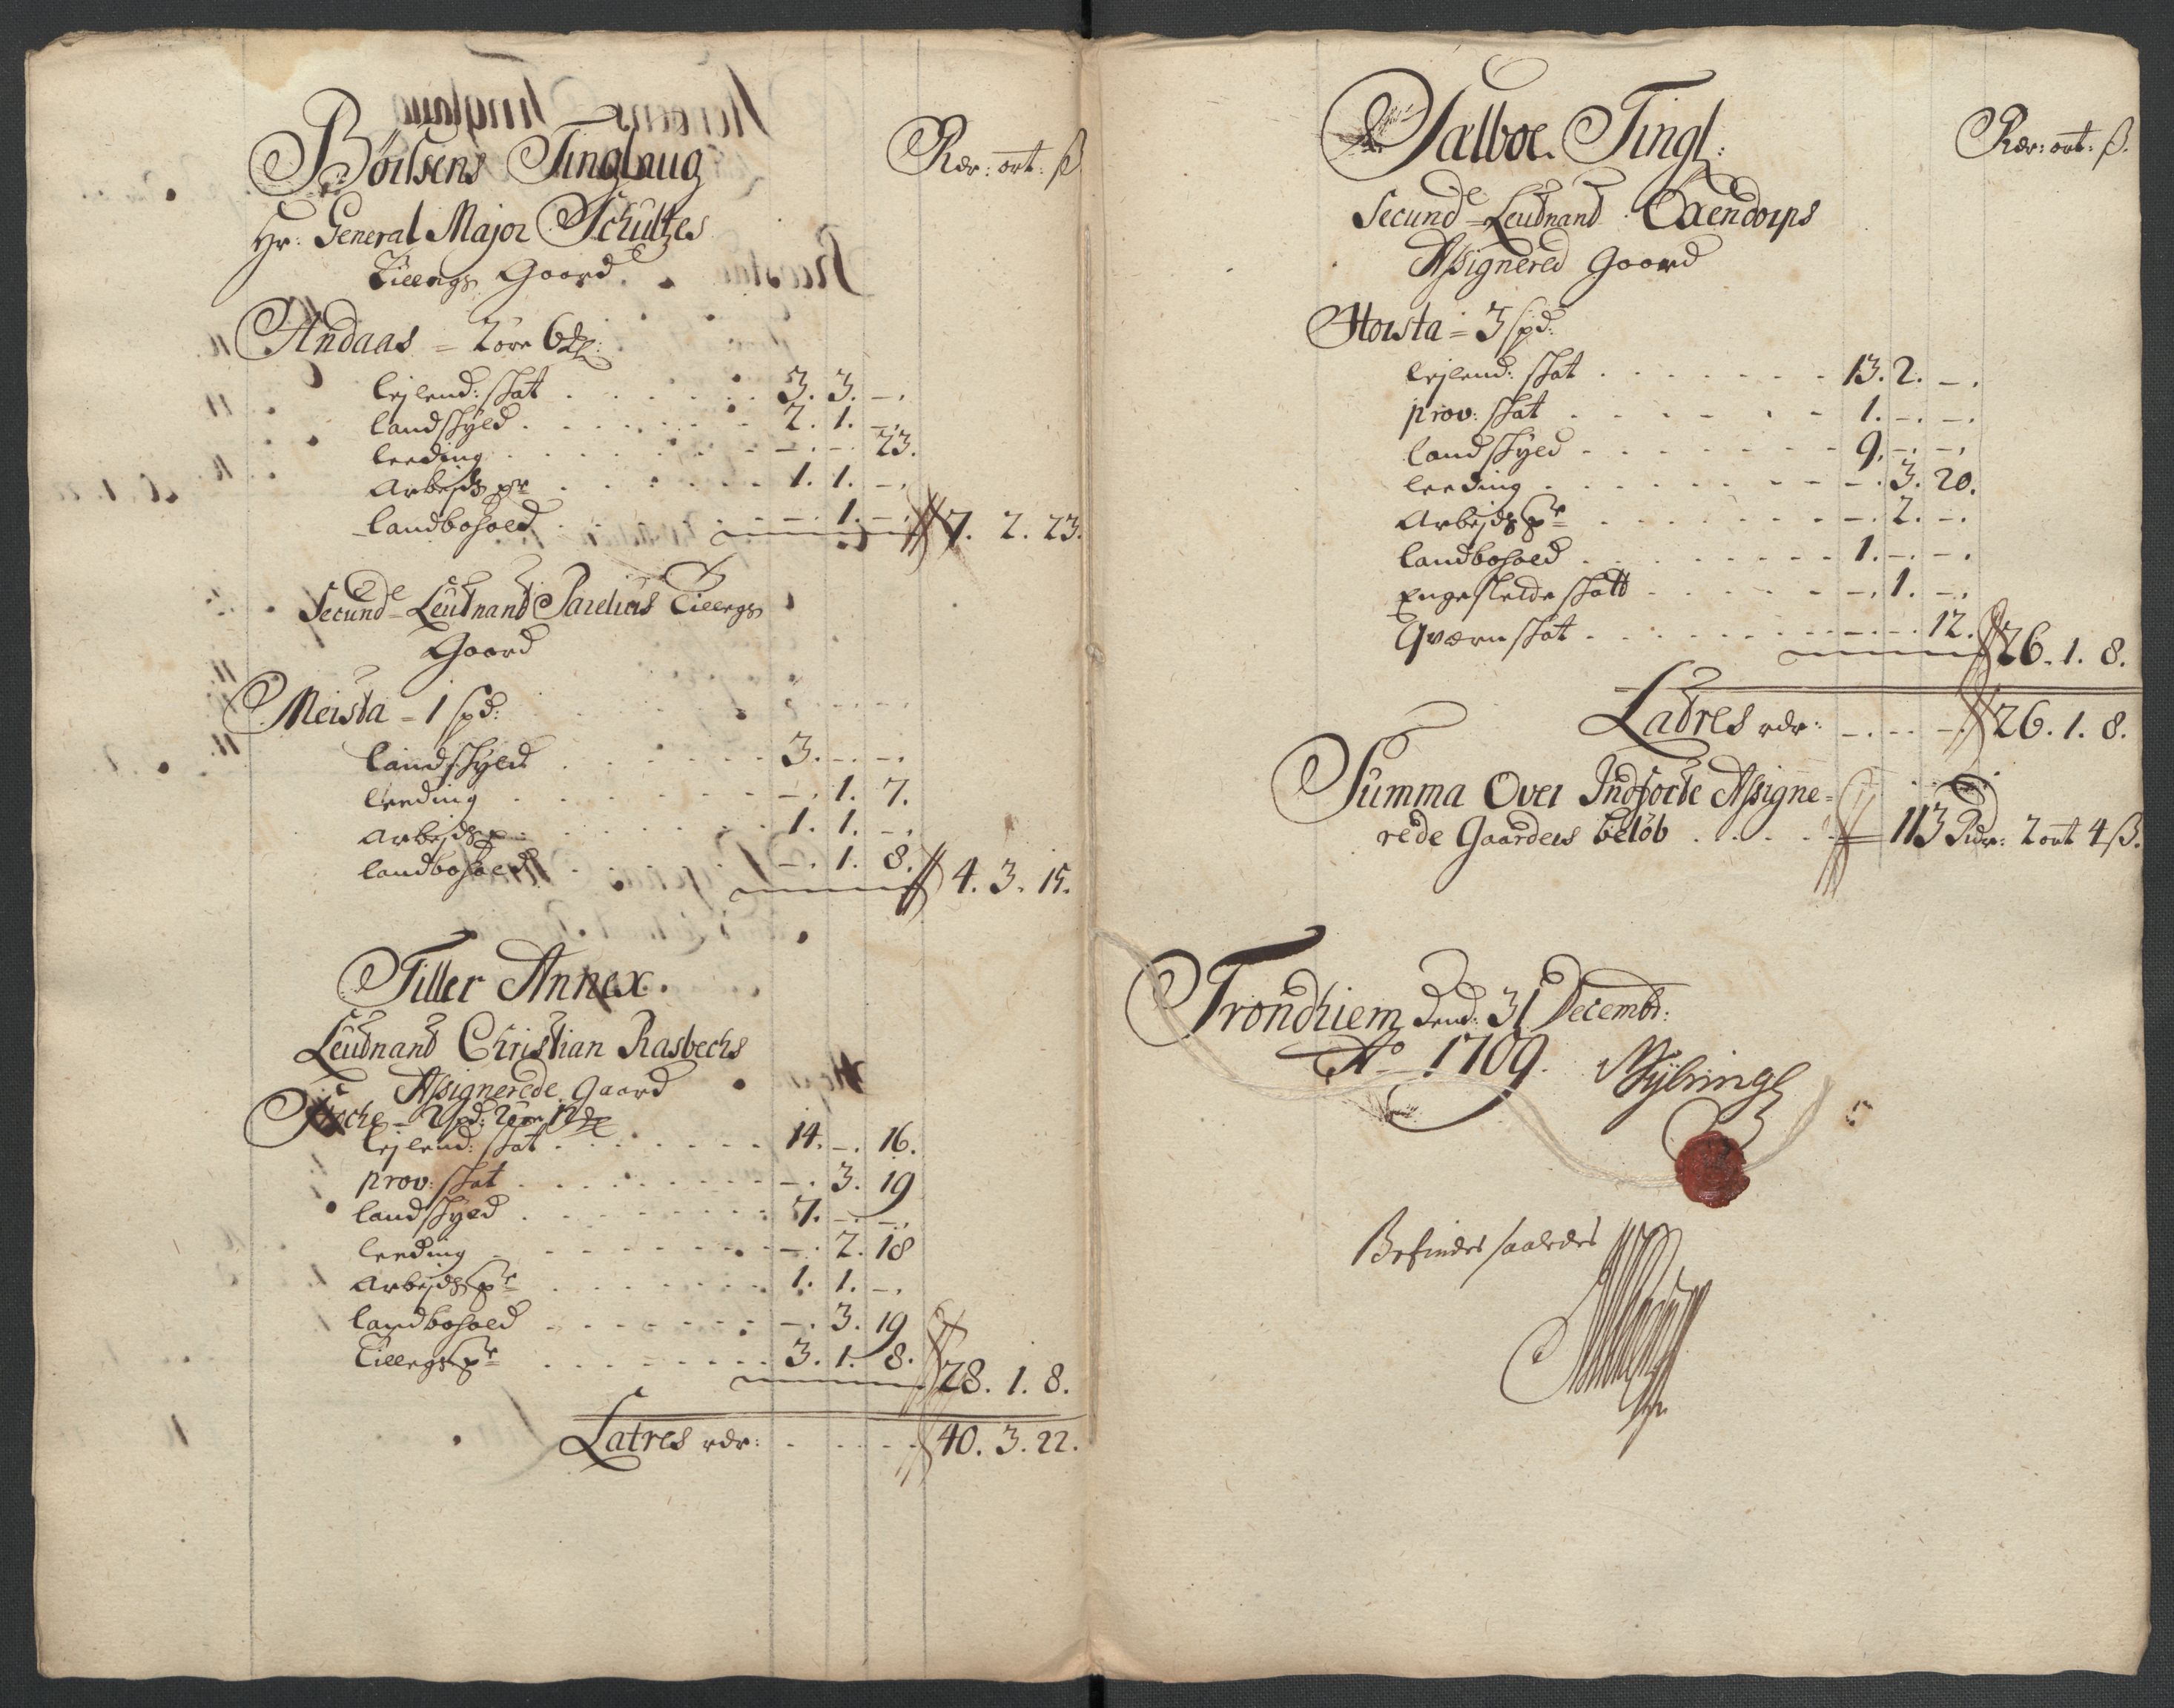 Børsens Tinglaug Rdr: ort: ß
Hr: General Major Schultzes
Tillegs Gaard
Andaas = 2 øre 6
lejlend: skat 3. 3. -.
landskyld 2. 1. -.
leeding -. -. 23.
Arbejds pr 1. 1. -.
landbohold -. 1. -. 7. 2. 23.
Secunde Leutnand Parelius Tillegs
Gaard
Meista = 1 spd:
landskyld 3. -. -.
leeding -. 1. 7.
Arbejds p 1. 1. -.
landbohold -. 1. 8. 4. 3. 15.
Tiller Annex.
Leutnand Christian Rasbechs
Assignerede Gaard
2 spd: 2 øre 12
lejlend: skat 14. -. 16.
prov: skat -. 3. 19
landskyld 7. -. -.
leeding -. 2. 18
Arbejds pr 1. 1. -.
landbohold -. 3. 19
Tillegs pr 3. 1. 8. 28. 1. 8.
Latres rdr: 40. 3. 22.
Sælboe Tingl: Rdr: ort: ß.
Secunde Leutnand Oxendorps
Assignered Gaard
Storsta = 3 spd:
lejlend: skat 13. 2. -.
prov: skat 1. -. -.
landskyld 9. -. -.
leeding -. 3. 20.
Arbejds pr -. 2. -.
landbohold 1. -. -.
Engesletde skatt -. 1. -.
Qværn skat -. -. 12. 26. 1. 8.
Latres rdr: 26. 1. 8.
Summa Over Indførte Assigne=
rede Gaarders beløb 113 Rdr: 2 ort 4 ß.
Trondhiem Dend: 31 Decembr:
Ao 1709.
Befindes saaledes